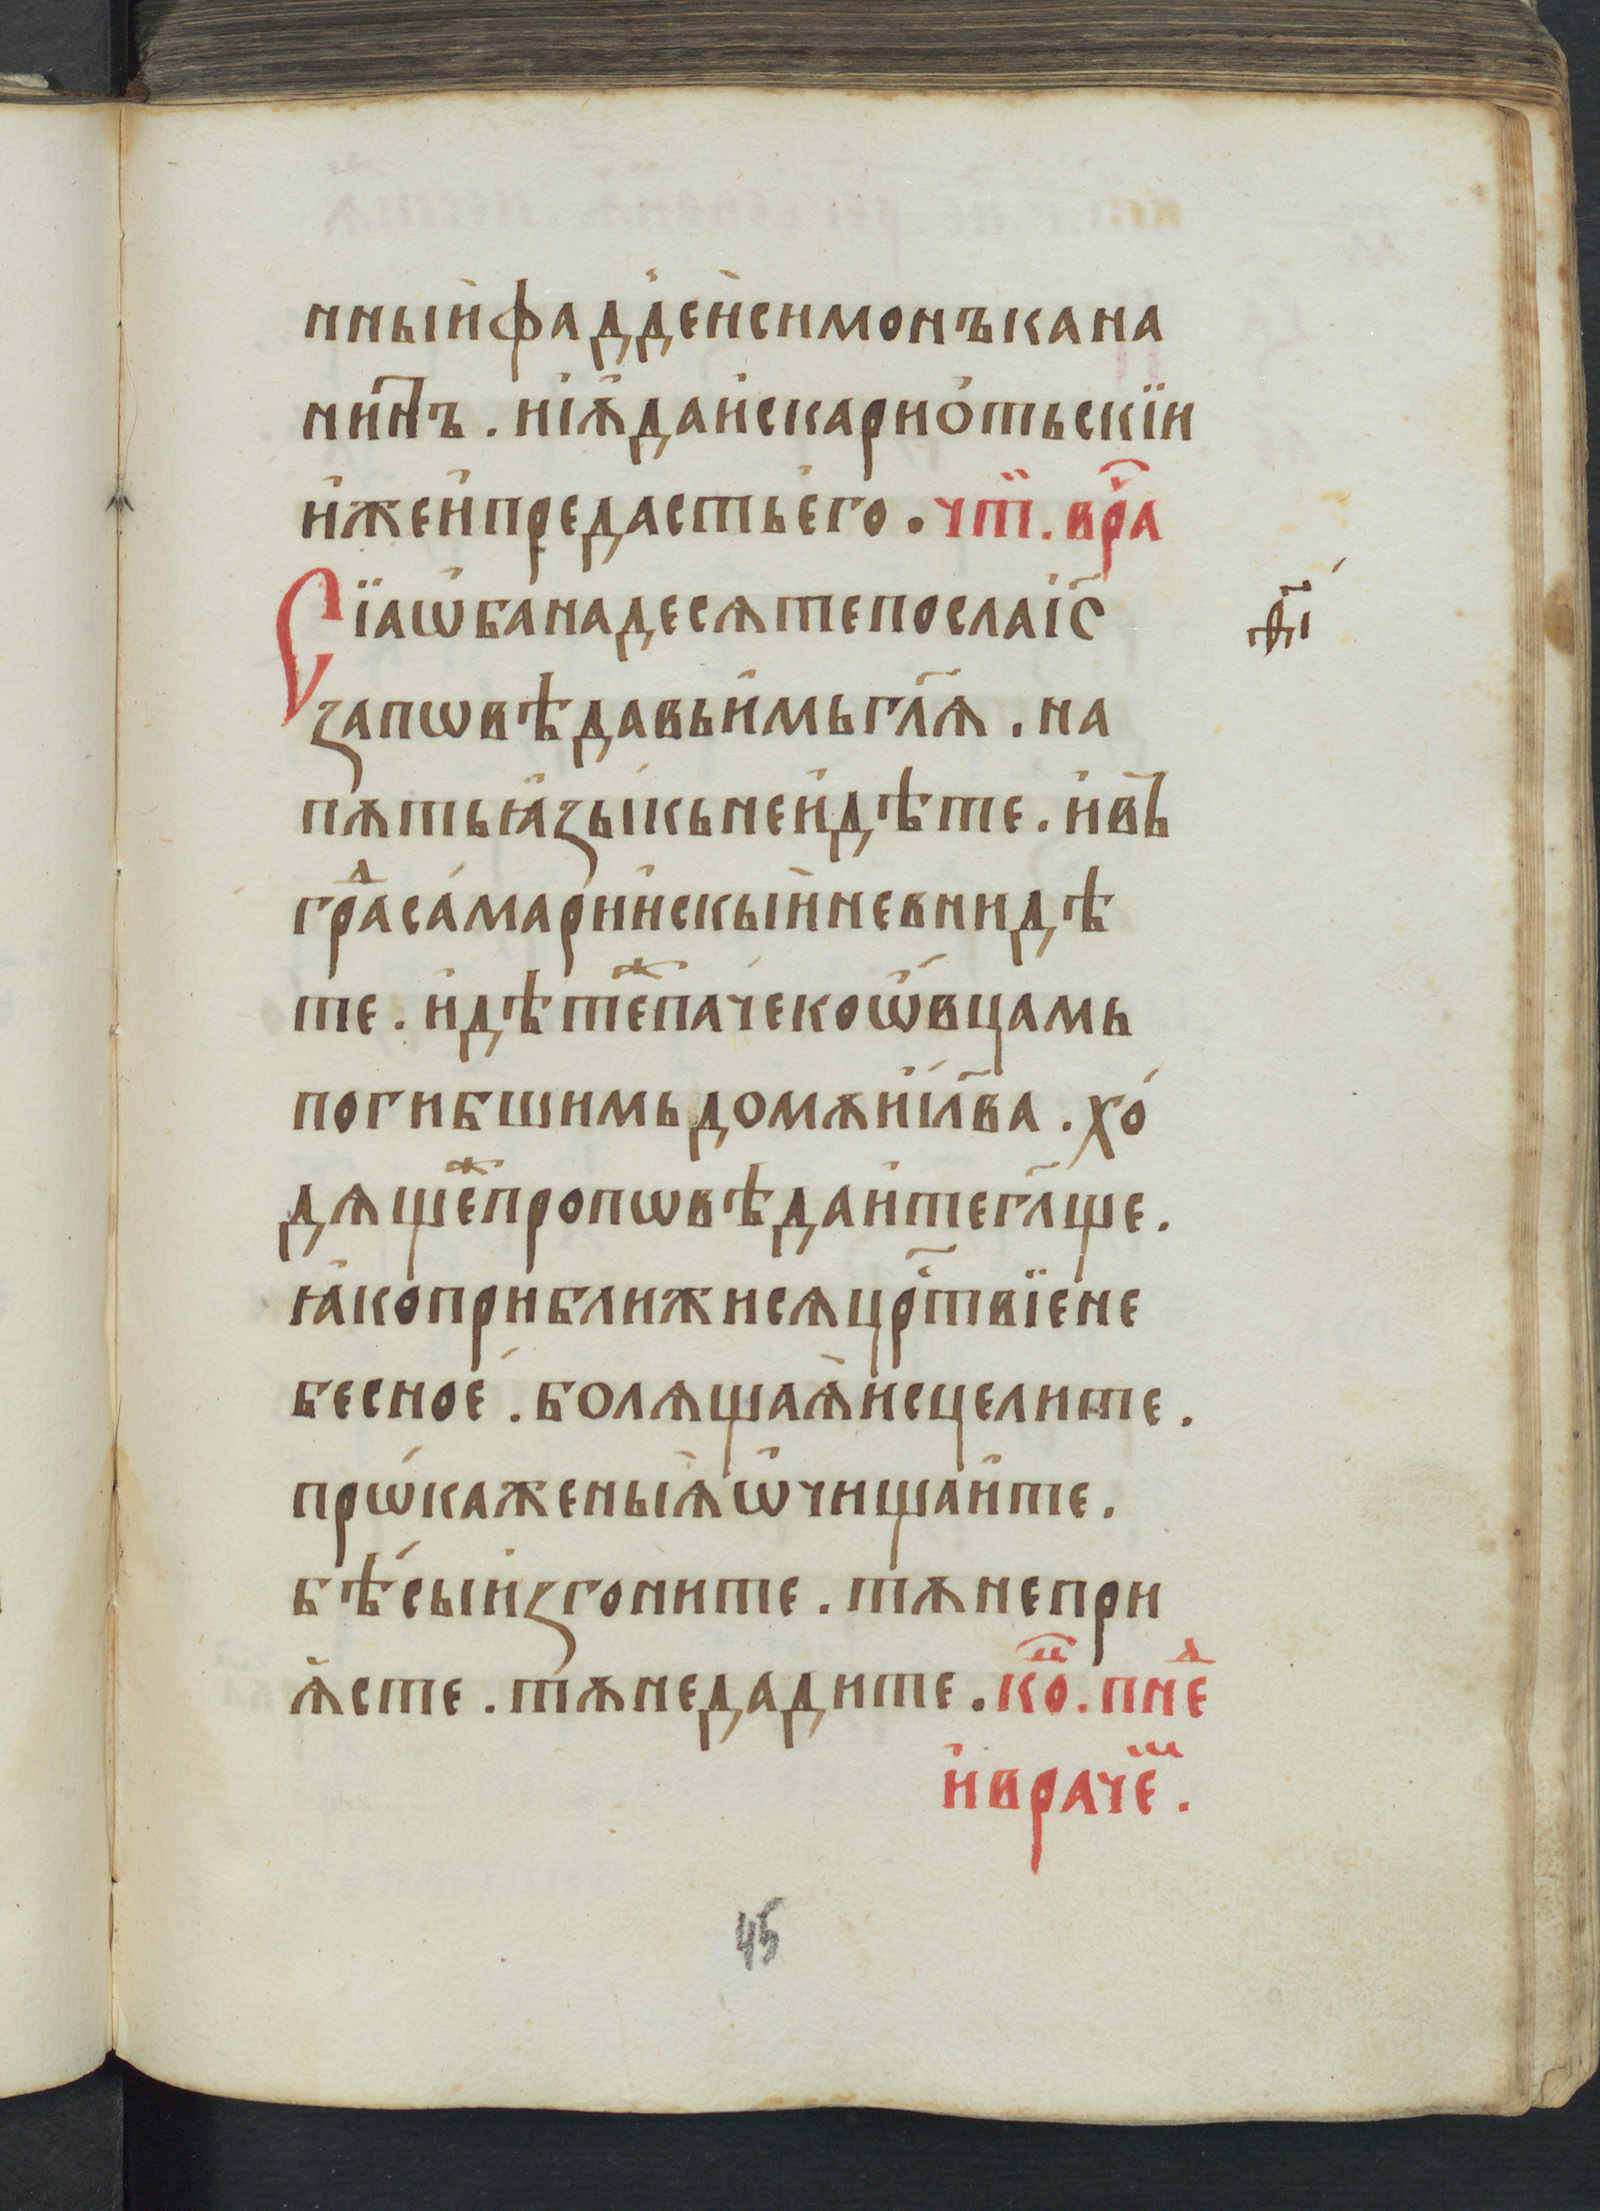 нныи҆фадде҆и҆симонъкана
ни́нъ. и҆і҆ѫ҆даи҆скарио́тьскїи
и҆жеи҆предастье҆го. чт҃ї. вра҃
Сїаѡ҆банадесѧтепосла і҆с҃
запѡвѣдавьи҆мьгл҃ѧ. на
пѫтьꙗ҆зы́кьнеи҆дѣте. и҆въ
граⷣса́мари́и҆скыи҆невнидѣ
те. и҆дѣтеⷤпа́чекоѡ҆́вцамь
погибшимьдомѫи҆і҆́л҃ва. хо́
дѧщеⷤпропѡвѣдаи҆тегл҃ще.
ꙗ҆коприближисѧцр҃ⷭтвїене
бесное́. болѧщаѧ҆и҆сцелите.
прѡ́каженыѧ҆ѡ҆чищаи҆те.
бѣ́сыи҆згоните. тѫнепри
ѧ҆сте. тѫнедадите. коⷰ҇. пнеⷣ
и҆врачеⷨ.
ѳ҃і
45